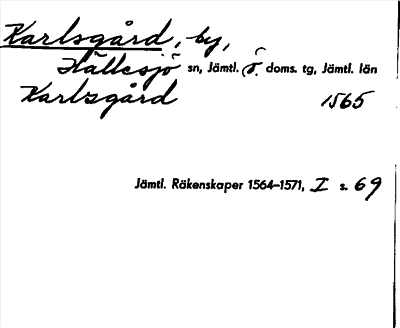 Karlsgård, by,
Hällesjö sn, Jämtl. ö. doms. tg, Jämtl. län
Karlzgård 1565
Jämtl. Räkenskaper 1564–1571, I s. 69